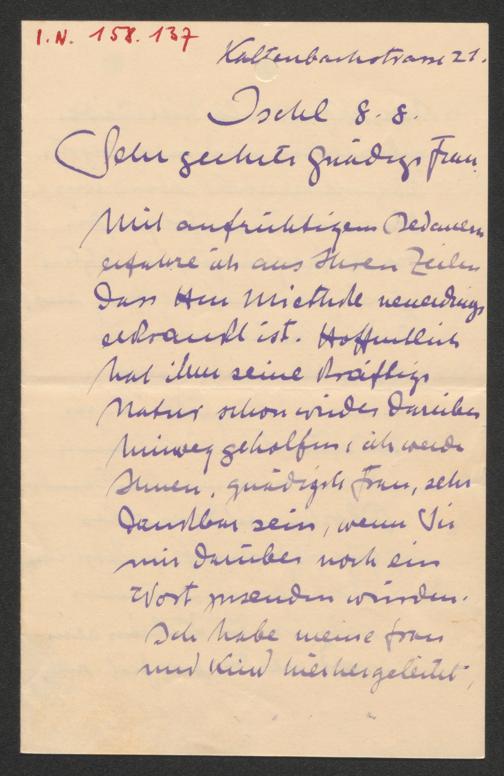 I.N. 158.137
Kaltenbachstrasse 21.
Ischl 8. 8.
Sehr geehrte gnädige Frau
Mit aufrichtigem Bedauern
erfahre ich aus Ihren Zeilen
dass Herr Miethke neuerdings
erkrankt ist. Hoffentlich
hat ihm seine kräftige
Natur schon wieder darüber
hinweg geholfen; ich werde
Ihnen, gnädigste Frau, sehr
dankbar sein, wenn Sie
mir darüber noch ein
Wort zusenden würden.
Ich habe meine Frau
und Kind hierhergeleitet,